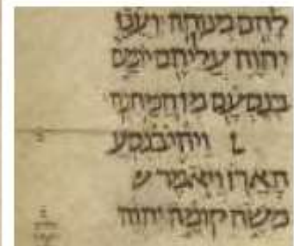 להם מנוחה וענן
יהוה עליהם יומם
בנסעם מן המחנה
׆ ויהי בנסע
הארן ויאמר
משה קומה יהוה